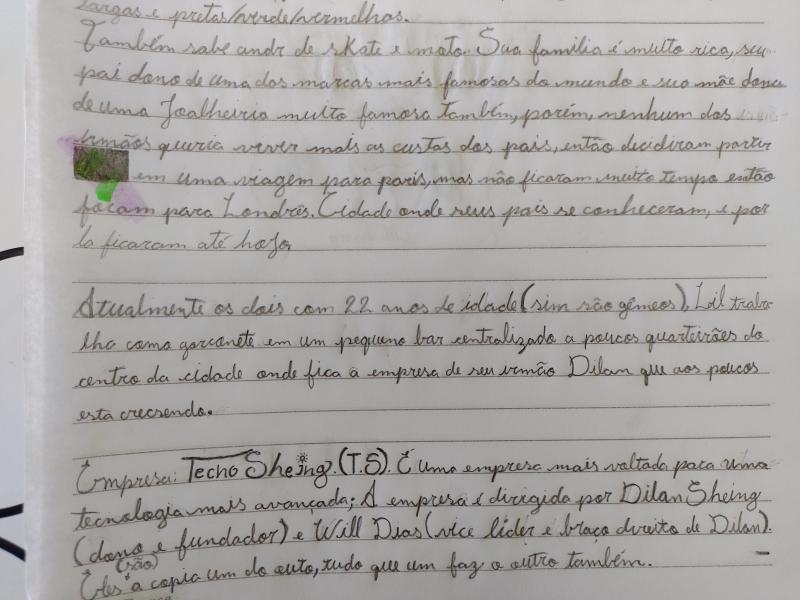 largas e pretas/verde/vermelhas.
Também sabe andr de skate e moto. Sua familia é muito rica, seu
pai dono de uma das marcas mais famosas do mundo e sua mãe dona
de uma Joalheiria muito famosa também, porém, nenhum dos
irmãos queria viver mais as custas dos pais, então decidiram partir
em uma viagem para paris, mas não ficaram muito tempo então
foram para Londres. Cidade onde seus pais se conheceram, e por
la ficaram até hoje.
Atualmente os dois com 22 anos de idade (sim são gêmeos), Lil traba
lha como garconete em um pequeno bar centralizado a poucos quarteirões do
centro da cidade onde fica a empresa de seu irmão Dilan que aos poucos
esta crescendo.
Empresa: Techo Sheing. (T.S). É uma empresa mais voltada para uma
tecnologia mais avançada; A empresa é dirigida por Dilan Sheing
(dono e fundador) e Will Dias (vice líder e braço direito de Dilan).
(são)
Eles a copia um do outo, tudo que um faz o outro também.